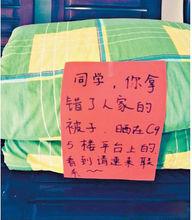 同学,你拿
错了人家的
被子.晒在C9
5楼平台上的
看到请速来联
系~~